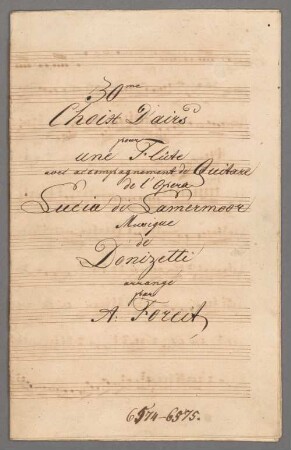 30me
Choix D'airs
pour
une Flûte
avec accompagnement de Guitare
de l'Opera
Lucia di Lamermoor
Musique
de
Donizetti
arrangé
par
A. Foreit
6574-6575.